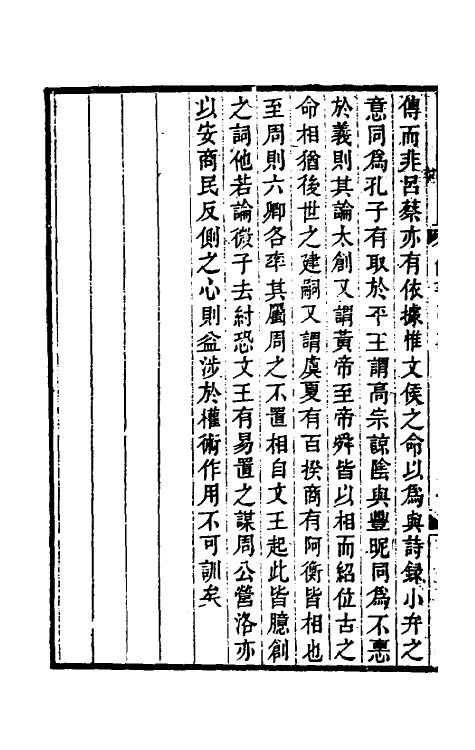 傳而非呂蔡亦有依據惟文侯之命以爲與詩録小弁之
意同爲孔子有取於平王謂高宗諒陰與豐昵同爲不惠
於義則其論太創又謂黃帝至帝舜皆以相而紹位古之
命相猶後世之建嗣又謂虞夏有百揆商有阿衡皆相也
至周則六卿各率其屬周之不置相自文王起此皆臆創
之詞他若論微子去紂恐文王有易置之謀周公營洛亦
以安商民反側之心則益涉於權術作用不可訓矣